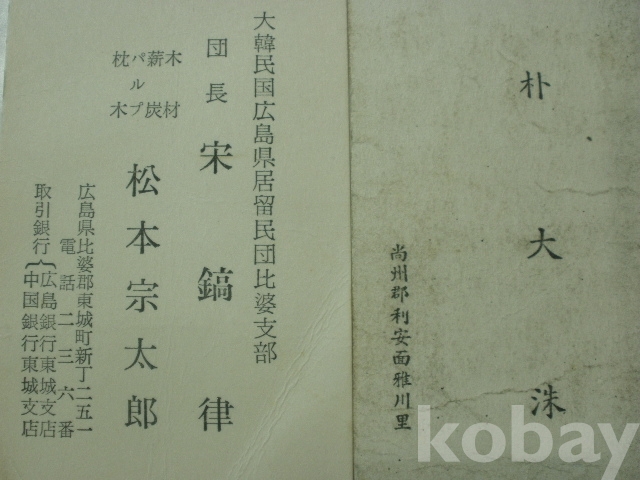 大韓民国広島県居留民団比婆支部
団長 宋鎬律
木材
薪炭
パルプ
枕木
松本宗太郎
広島県比婆郡東城町新丁二五一
電話二三六番
取引銀行{広島銀行東城支店
中国銀行東城支店
朴大洙
尚州郡利安面雅川里
kobay